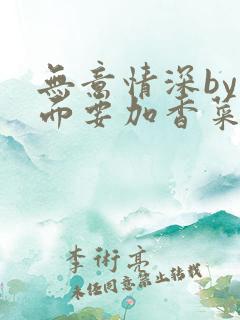 無意情深by
而要加香菜
李術亮
未经同意禁止转载